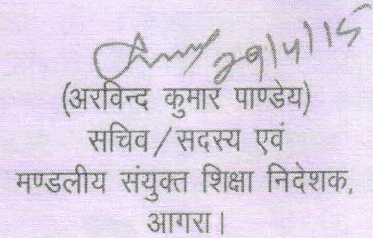 29/4/15
(अरविन्द कुमार पाण्डेय)
सचिव/सदस्य एवं
मण्डलीय संयुक्त शिक्षा निदेशक,
आगरा।